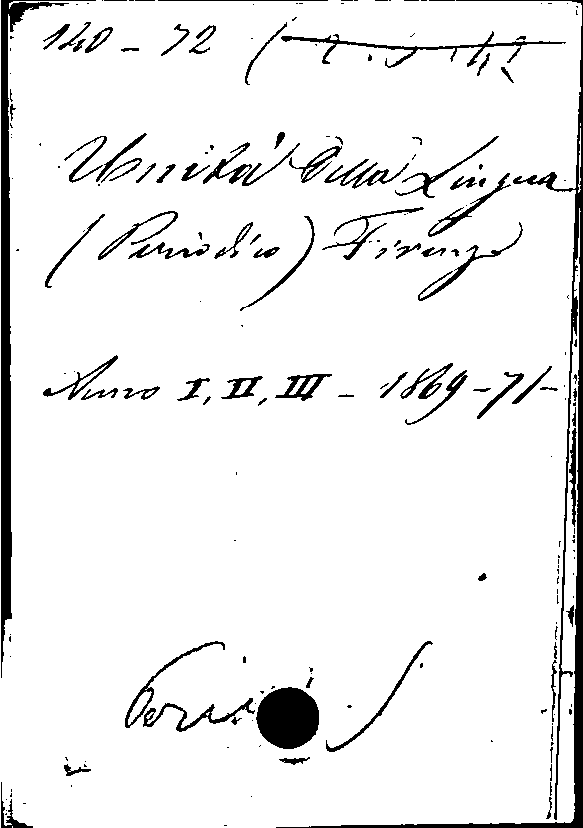 140 - 72 (
Unità della Lingua
(Periodico) Firenze
Anno I, II, III - 1869-71-